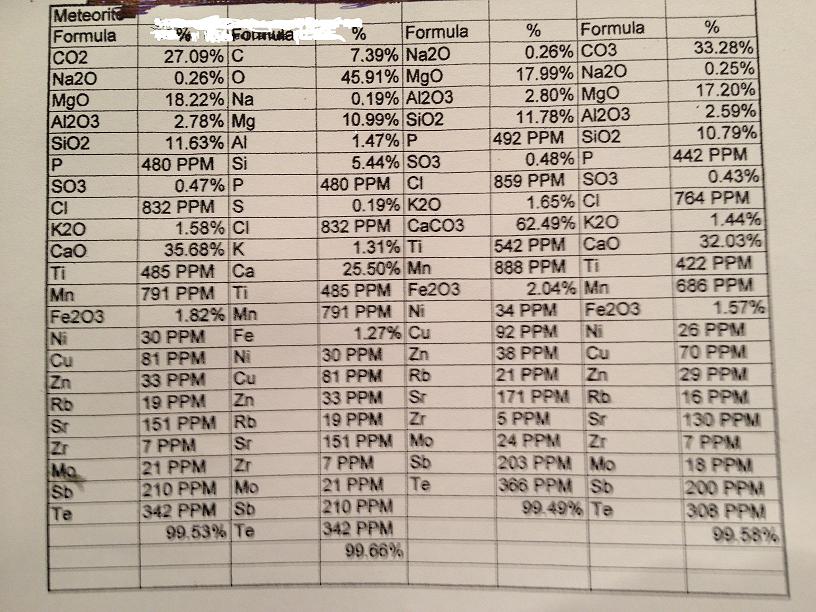 Meteorite
Formula % Formula % Formula % Formula %
CO2 27.09% C 7.39% Na2O 0.26% CO3 33.28%
Na2O 0.26% O 45.91% MgO 17.99% Na2O 0.25%
MgO 18.22% Na 0.19% Al2O3 2.80% MgO 17.20%
Al2O3 2.78% Mg 10.99% SiO2 11.78% Al2O3 2.59%
SiO2 11.63% Al 1.47% P 492 PPM SiO2 10.79%
P 480 PPM Si 5.44% SO3 0.48% P 442 PPM
SO3 0.47% P 480 PPM Cl 859 PPM SO3 0.43%
Cl 832 PPM S 0.19% K2O 1.65% Cl 764 PPM
K2O 1.58% Cl 832 PPM CaCO3 62.49% K2O 1.44%
CaO 35.68% K 1.31% Ti 542 PPM CaO 32.03%
Ti 485 PPM Ca 25.50% Mn 888 PPM Ti 422 PPM
Mn 791 PPM Ti 485 PPM Fe2O3 2.04% Mn 686 PPM
Fe2O3 1.82% Mn 791 PPM Ni 34 PPM Fe2O3 1.57%
Ni 30 PPM Fe 1.27% Cu 92 PPM Ni 26 PPM
Cu 81 PPM Ni 30 PPM Zn 38 PPM Cu 70 PPM
Zn 33 PPM Cu 81 PPM Rb 21 PPM Zn 29 PPM
Rb 19 PPM Zn 33 PPM Sr 171 PPM Rb 16 PPM
Sr 151 PPM Rb 19 PPM Zr 5 PPM Sr 130 PPM
Zr 7 PPM Sr 151 PPM Mo 24 PPM Zr 7 PPM
Mo 21 PPM Zr 7 PPM Sb 203 PPM Mo 18 PPM
Sb 210 PPM Mo 21 PPM Te 366 PPM Sb 200 PPM
Te 342 PPM Sb 210 PPM 99.49% Te 308 PPM
99.53% Te 342 PPM 99.58%
99.66%